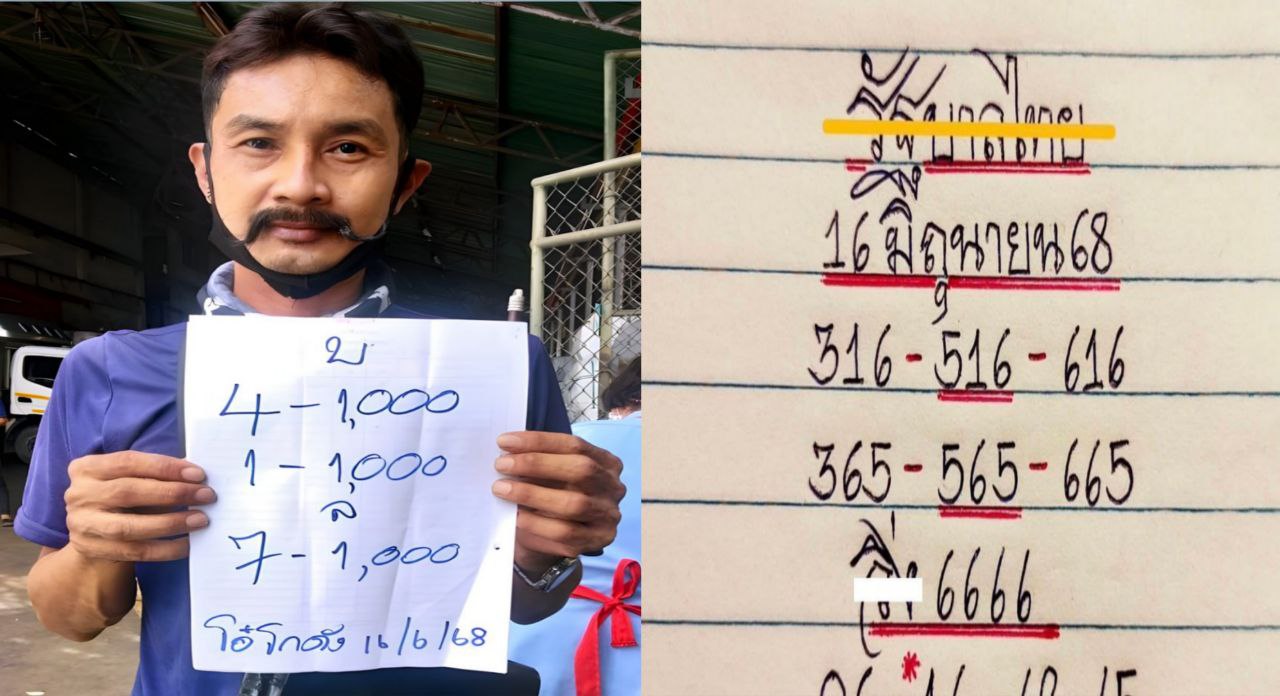 บ
4 - 1,000
1 - 1,000
ล
7 - 1,000
โอ๋โกดัง 16/6/68
รัฐบาลไทย
16 มิถุนายน 68
316 - 516 - 616
365 - 565 - 665
6666